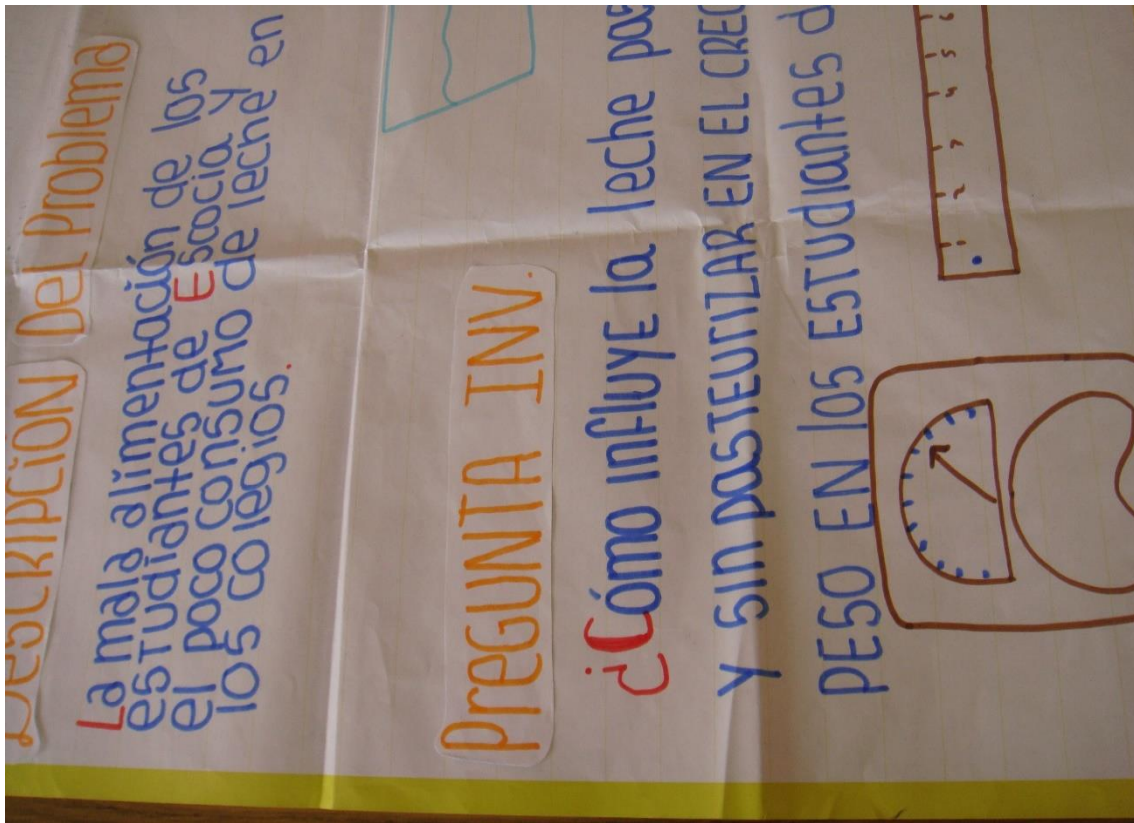 DESCRIPCIÓN Del Problema
La mala alimentación de los
estudiantes de Escocia y
el poco consumo de leche en
los colegios.
PreGUNTA INV.
¿Cómo influye la leche pas
y sin pasteurizar EN EL CREC
PESO EN los ESTUDIANTES d
1 2 3 4 5 6